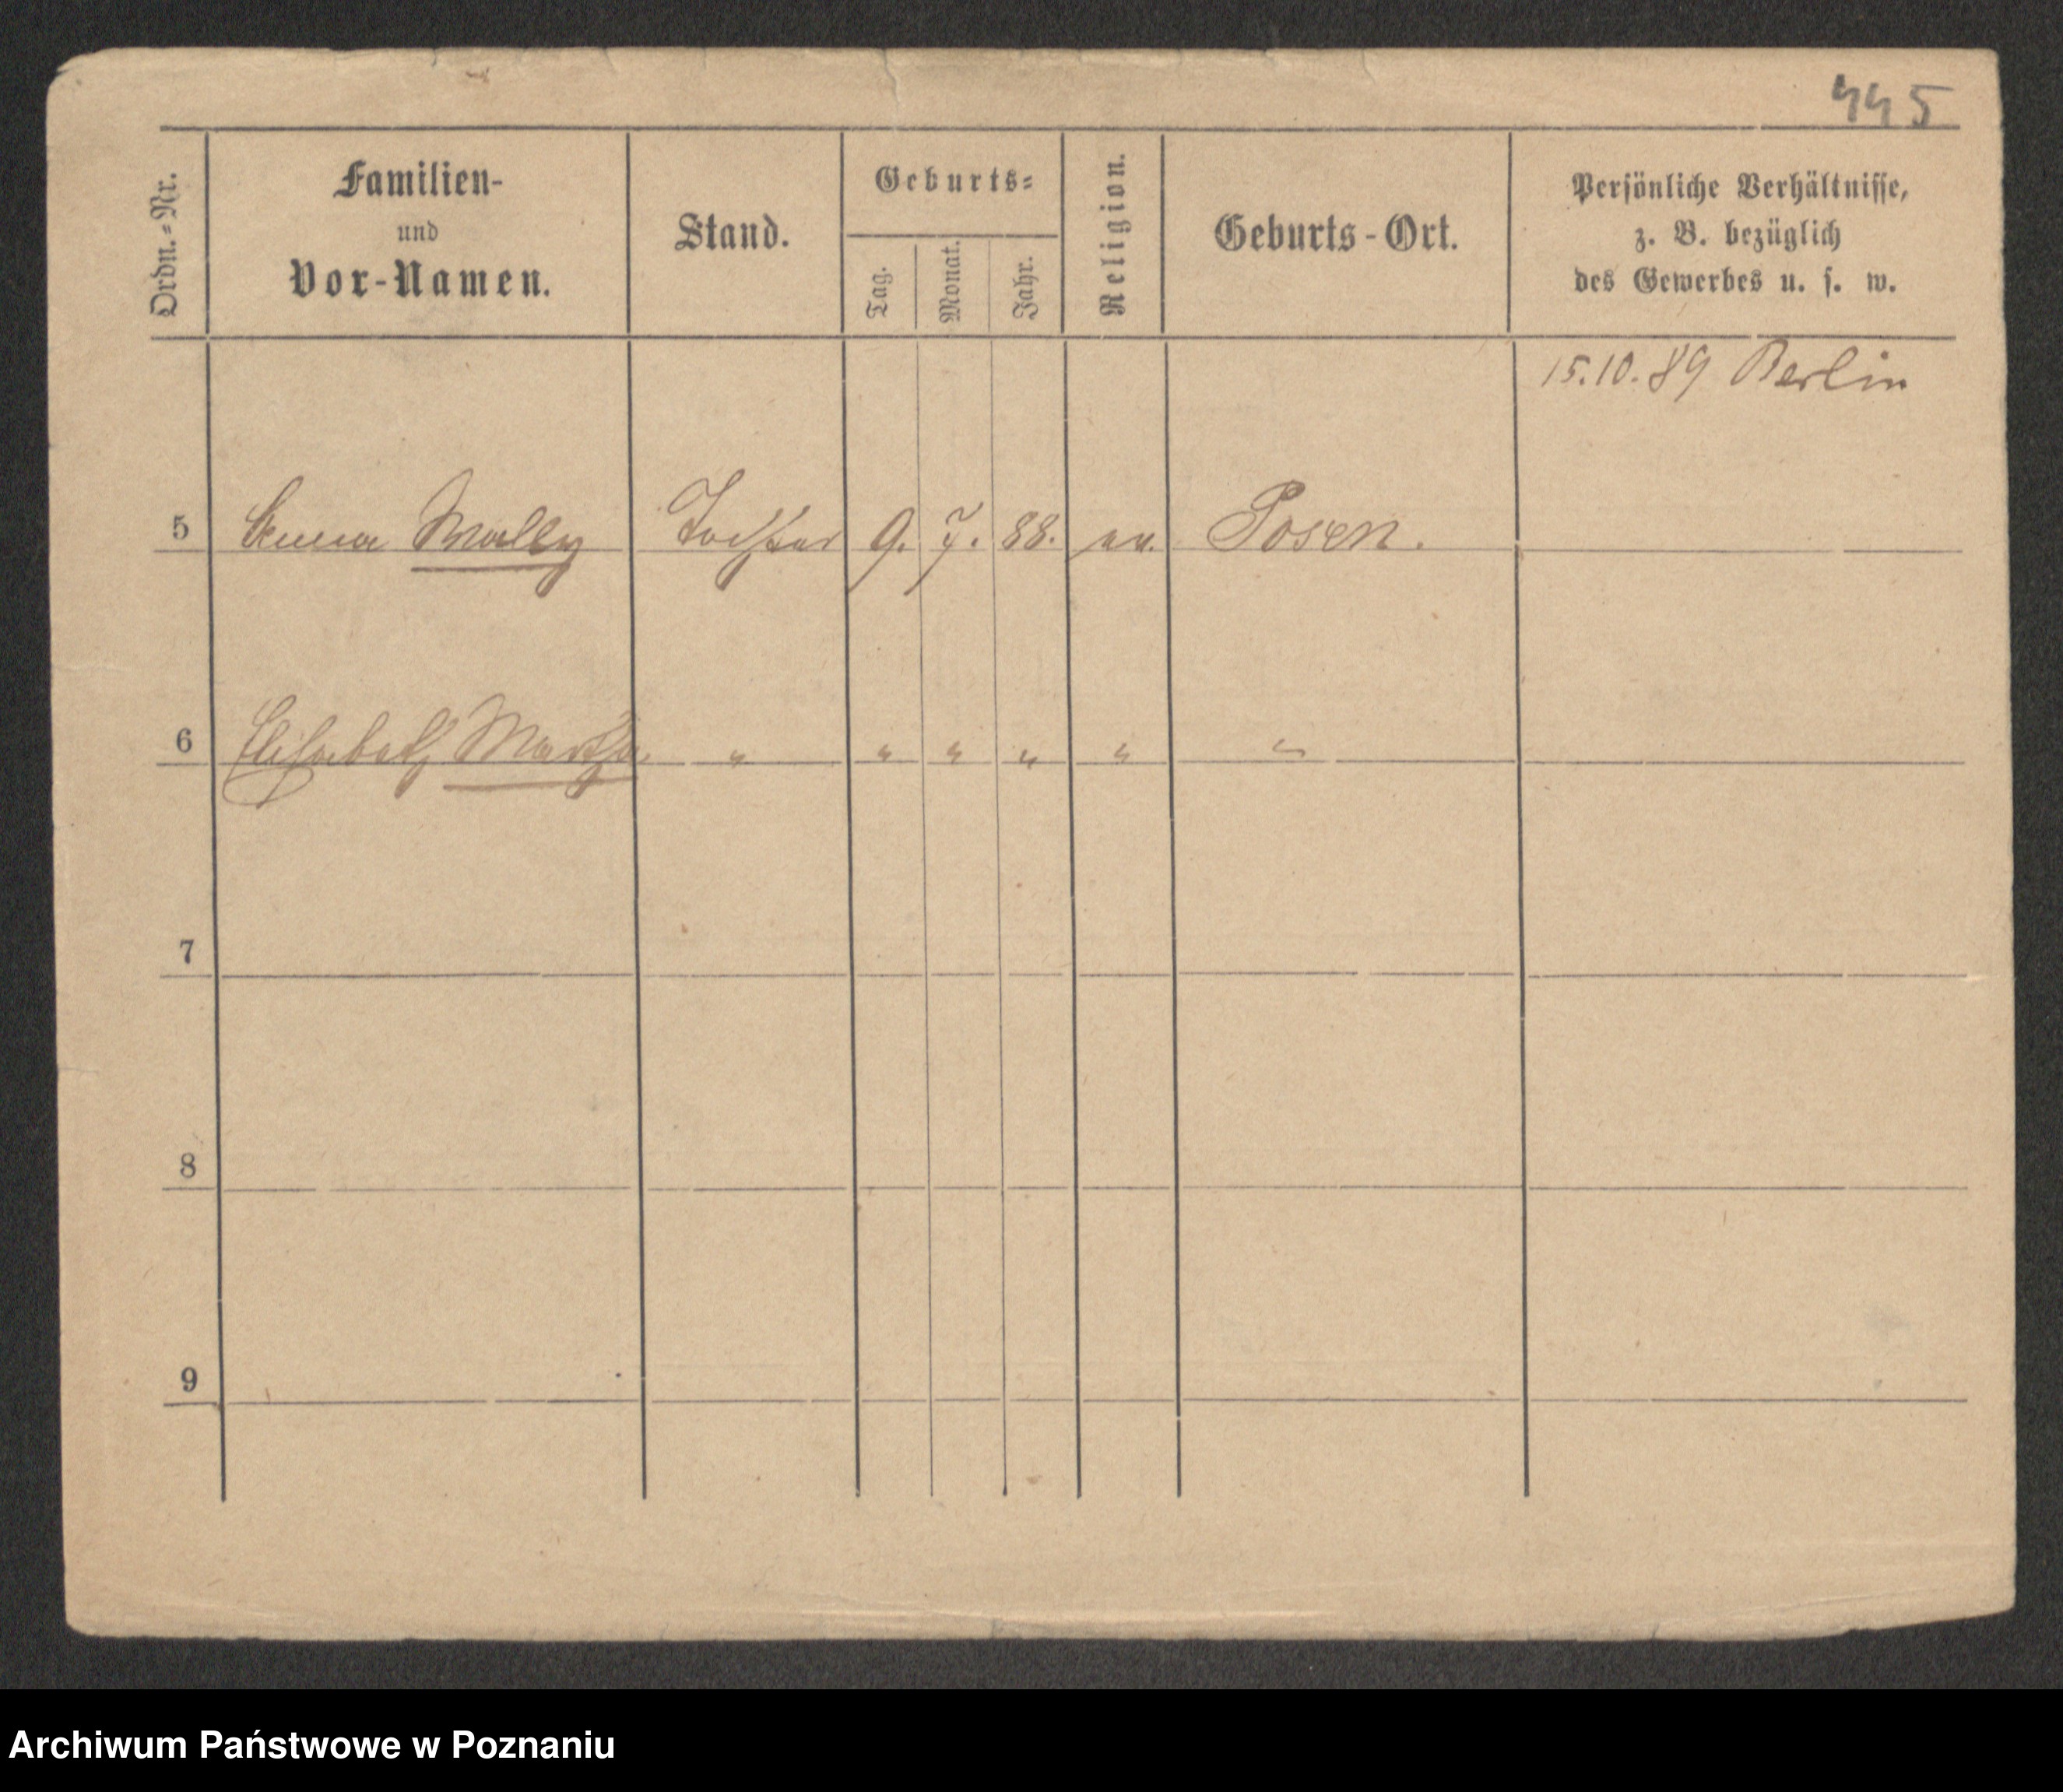 445
Ordn.-Nr.
Familien-
und
Vor-Namen.
Stand.
Geburts-
Tag.
Monat.
Jahr.
Religion.
Geburts-Ort.
Persönliche Verhältnisse,
z. B. bezüglich
des Gewerbes u. s. w.
15.10.89 Berlin
5 Anna Wally Tochter 9. 7. 88. ev. Posen.
6 Elisabeth Martha " " " " " "
7
8
9
Archiwum Państwowe w Poznaniu